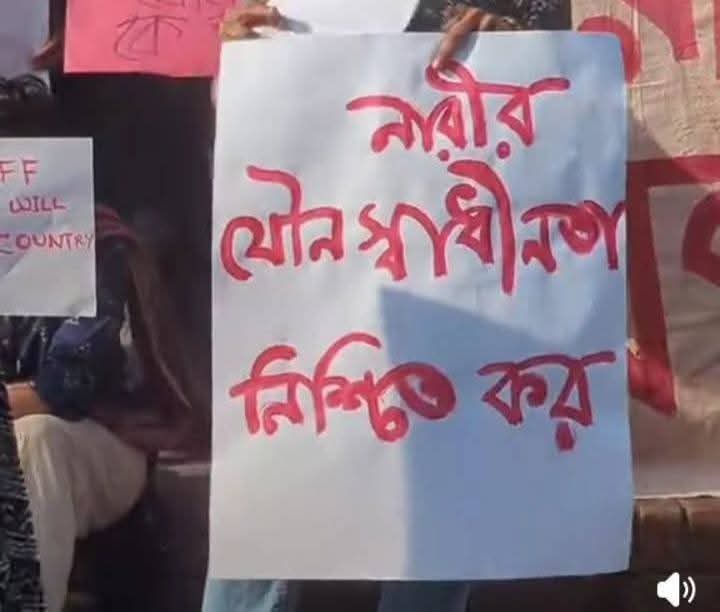 কে
নারীর
যৌন স্বাধীনতা
নিশ্চিত কর
FF
WILL
COUNTRY